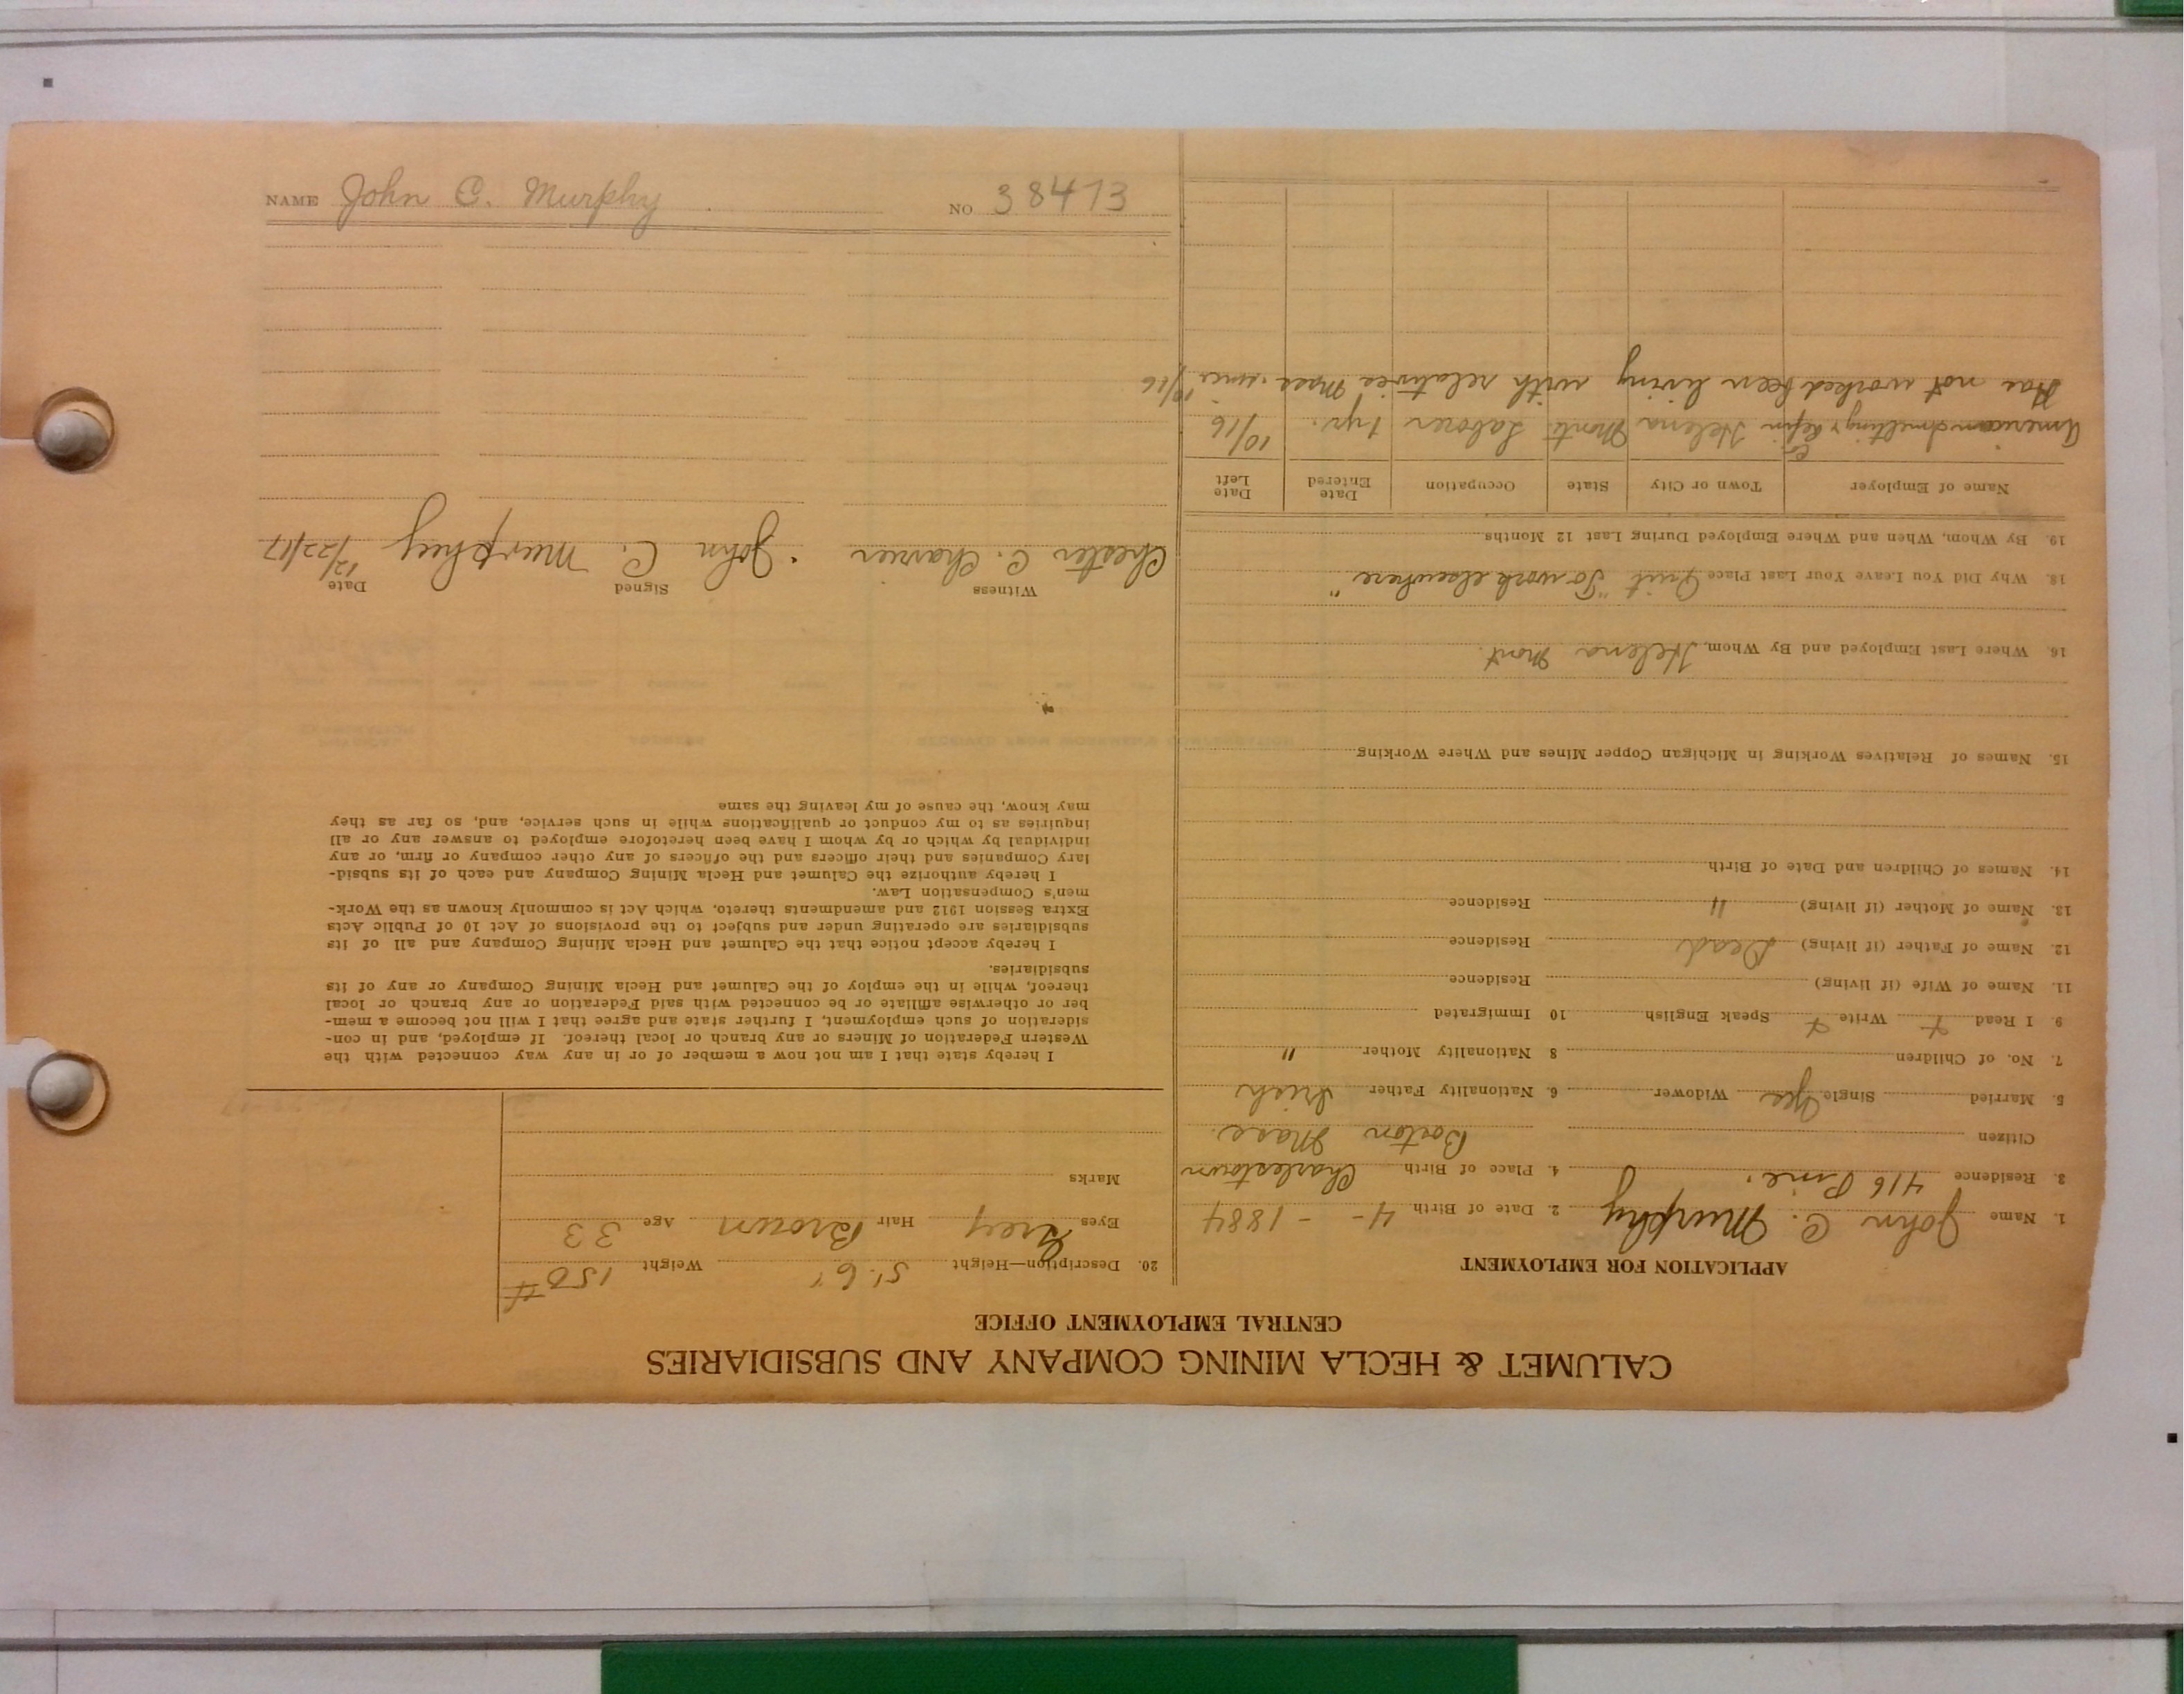 CALUMET & HECLA MINING COMPANY AND SUBSIDIARIES
CENTRAL EMPLOYMENT OFFICE
APPLICATION FOR EMPLOYMENT
1. Name John C. Murphy 2. Date of Birth 4- - 1884
3. Residence 416 Pine. 4. Place of Birth Charlestown
Citizen Boston Mass.
5. Married Single Yes Widower 6. Nationality Father Irish
7. No. of Children 8 Nationality Mother "
9. I Read Write Speak English 10 Immigrated
11. Name of Wife (if living) Residence
12. Name of Father (if living) Dead Residence
13. Name of Mother (if living) " Residence
14. Names of Children and Date of Birth
15. Names of Relatives Working in Michigan Copper Mines and Where Working
16. Where Last Employed and By Whom, Helena Mont.
18. Why Did You Leave Your Last Place Quit "To work elsewhere"
19. By Whom, When and Where Employed During Last 12 Months
Name of Employer Town or City State Occupation Date Entered Date Left
American Smelting & Refin Co Helena Mont Laborer 1 yr. 10/16
Has not worked been living with relatives Mass. since 10/16
20. Description—Height 5'. 6" Weight 150 #
Eyes Grey Hair Brown Age 33
Marks
I hereby state that I am not now a member of or in any way connected with the
Western Federation of Miners or any branch or local thereof. If employed, and in con-
sideration of such employment, I further state and agree that I will not become a mem-
ber or otherwise affiliate or be connected with said Federation or any branch or local
thereof, while in the employ of the Calumet and Hecla Mining Company or any of its
subsidiaries.
I hereby accept notice that the Calumet and Hecla Mining Company and all of its
subsidiaries are operating under and subject to the provisions of Act 10 of Public Acts
Extra Session 1912 and amendments thereto, which Act is commonly known as the Work-
men's Compensation Law.
I hereby authorize the Calumet and Hecla Mining Company and each of its subsid-
iary Companies and their officers and the officers of any other company or firm, or any
individual by which or by whom I have been heretofore employed to answer any or all
inquiries as to my conduct or qualifications while in such service, and, so far as they
may know, the cause of my leaving the same
Witness Signed Date
Chester C. Charrier John C. Murphey 12/22/17
NAME John C. Murphy NO 38473